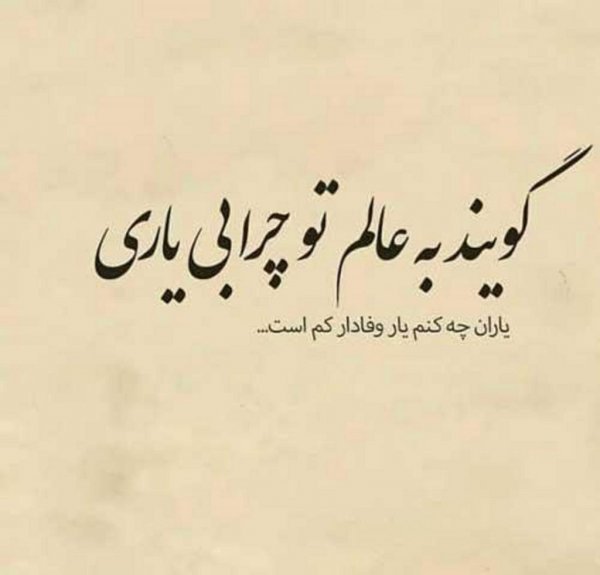 گویند به عالم تو چرا بی یاری
یاران چه کنم یار وفادار کم است...